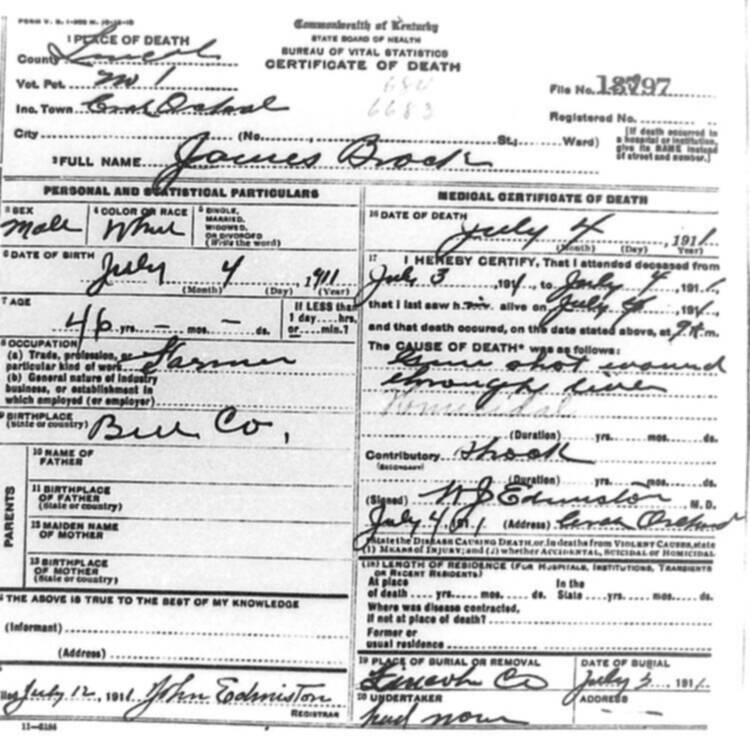 FORM V. S. 1-
Commonwealth of Kentucky
STATE BOARD OF HEALTH
BUREAU OF VITAL STATISTICS
CERTIFICATE OF DEATH
1 PLACE OF DEATH
County Lincoln
Vot. Pct. No 1
Inc. Town Crab Orchard
City (No. , St.; Ward)
File No. 18797
Registered No.
[If death occurred in a hospital or institution, give its NAME instead of street and number.]
2 FULL NAME James Brock
PERSONAL AND STATISTICAL PARTICULARS
3 SEX
Male
4 COLOR OR RACE
White
5 SINGLE, MARRIED, WIDOWED, OR DIVORCED (Write the word)
6 DATE OF BIRTH
July 4, 1911
(Month) (Day) (Year)
7 AGE
46 yrs. – mos. – ds.
If LESS than 1 day....hrs. or....min.?
8 OCCUPATION
(a) Trade, profession, or particular kind of work Farmer
(b) General nature of industry business, or establishment in which employed (or employer)
9 BIRTHPLACE (State or country) Bell Co,
PARENTS
10 NAME OF FATHER
11 BIRTHPLACE OF FATHER (State or country)
12 MAIDEN NAME OF MOTHER
13 BIRTHPLACE OF MOTHER (State or country)
THE ABOVE IS TRUE TO THE BEST OF MY KNOWLEDGE
(Informant)
(Address)
Filed July 12, 1911 John Edmiston
REGISTRAR
11-
MEDICAL CERTIFICATE OF DEATH
16 DATE OF DEATH
July 4, 1911
(Month) (Day) (Year)
17 I HEREBY CERTIFY, That I attended deceased from
July 3 191, to July 4, 1911,
that I last saw him alive on July 4, 191,
and that death occured, on the date stated above, at 9 m.
The CAUSE OF DEATH* was as follows:
Gun shot wound
through liver
Homicidal
(Duration) yrs. mos. ds.
Contributory Shock
(SECONDARY)
(Duration) yrs. mos. ds.
(Signed) W J Edmiston, M.D.
July 4 1911 (Address) Crab Orchard
*State the DISEASE CAUSING DEATH, or, in deaths from VIOLENT CAUSES, state
(1) MEANS OF INJURY; and (2) whether ACCIDENTAL, SUICIDAL or HOMICIDAL.
(18) LENGTH OF RESIDENCE (FOR HOSPITALS, INSTITUTIONS, TRANSIENTS OR RECENT RESIDENTS)
At place of death yrs. mos. ds. In the State yrs. mos. ds.
Where was disease contracted, if not at place of death?
Former or usual residence
19 PLACE OF BURIAL OR REMOVAL
Lincoln Co
DATE OF BURIAL
July 5 191
20 UNDERTAKER
had none
ADDRESS
– –